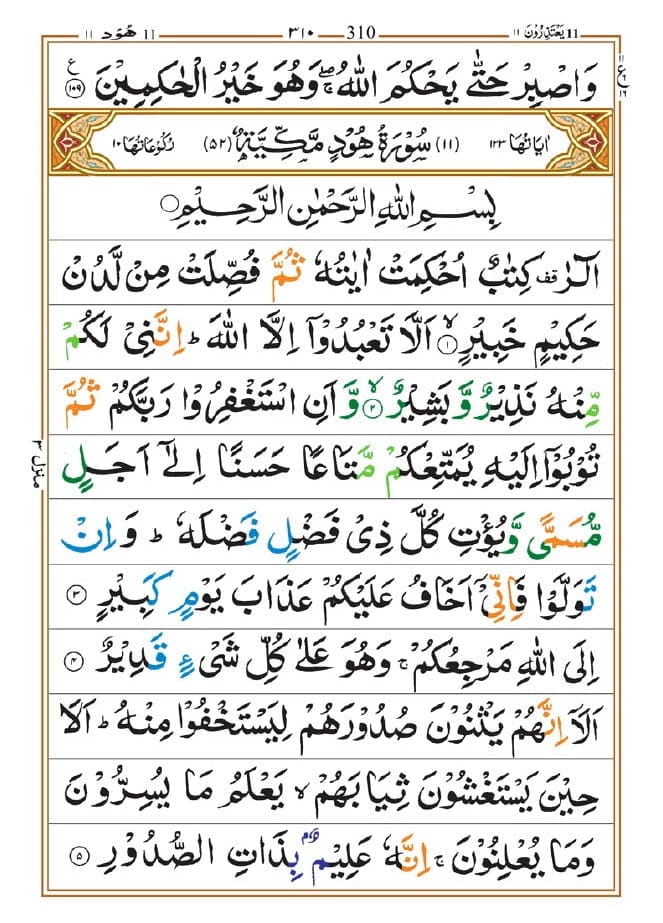 11 يَعْتَذِرُوْنَ ١١ ٣١٠ 310 11 هُوْد ١١
وَاصْبِرْ حَتّٰى يَحْكُمَ اللّٰهُ ۖۚ وَهُوَ خَيْرُ الْحٰكِمِيْنَ ۧ‏﴿۱۰۹﴾
اٰيَاتُهَا ١٢٣ (١١) سُوْرَةُ هُوْدٍ مَّكِّيَّةٌ (٥٢) رُكُوْعَاتُهَا ١٠
بِسْمِ اللّٰهِ الرَّحْمٰنِ الرَّحِيْمِ
الٓرٰ ࣞ كِتٰبٌ اُحْكِمَتْ اٰيٰتُهٗ ثُمَّ فُصِّلَتْ مِنْ لَّدُنْ
حَكِيْمٍ خَبِيْرٍۙ ﴿۱﴾ اَلَّا تَعْبُدُوْۤا اِلَّا اللّٰهَ ؕ اِنَّنِىْ لَكُمْ
مِّنْهُ نَذِيْرٌ وَّبَشِيْرٌۙ ﴿۲﴾ وَّاَنِ اسْتَغْفِرُوْا رَبَّكُمْ ثُمَّ
تُوْبُوْۤا اِلَيْهِ يُمَتِّعْكُمْ مَّتَاعًا حَسَنًا اِلٰٓى اَجَلٍ
مُّسَمًّى وَّيُؤْتِ كُلَّ ذِىْ فَضْلٍ فَضْلَهٗ ؕ وَاِنْ
تَوَلَّوْا فَاِنِّىْۤ اَخَافُ عَلَيْكُمْ عَذَابَ يَوْمٍ كَبِيْرٍ ﴿۳﴾
اِلَى اللّٰهِ مَرْجِعُكُمْ ۚ وَهُوَ عَلٰى كُلِّ شَىْءٍ قَدِيْرٌ ﴿۴﴾
اَلَاۤ اِنَّهُمْ يَثْنُوْنَ صُدُوْرَهُمْ لِيَسْتَخْفُوْا مِنْهُ ؕ اَلَا
حِيْنَ يَسْتَغْشُوْنَ ثِيَابَهُمْ ۙ يَعْلَمُ مَا يُسِرُّوْنَ
وَمَا يُعْلِنُوْنَ ۚ اِنَّهٗ عَلِيْمٌۢ بِذَاتِ الصُّدُوْرِ ﴿۵﴾
منزل ٣